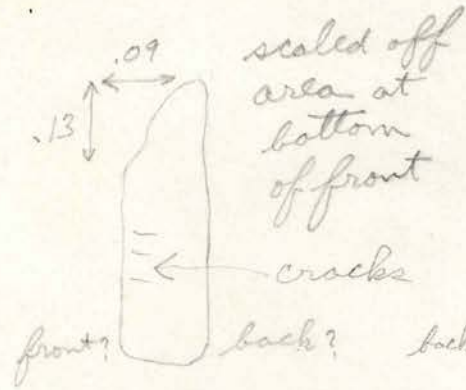 .09
.13
scaled off
area at
bottom
of front
cracks
front?
back?
back